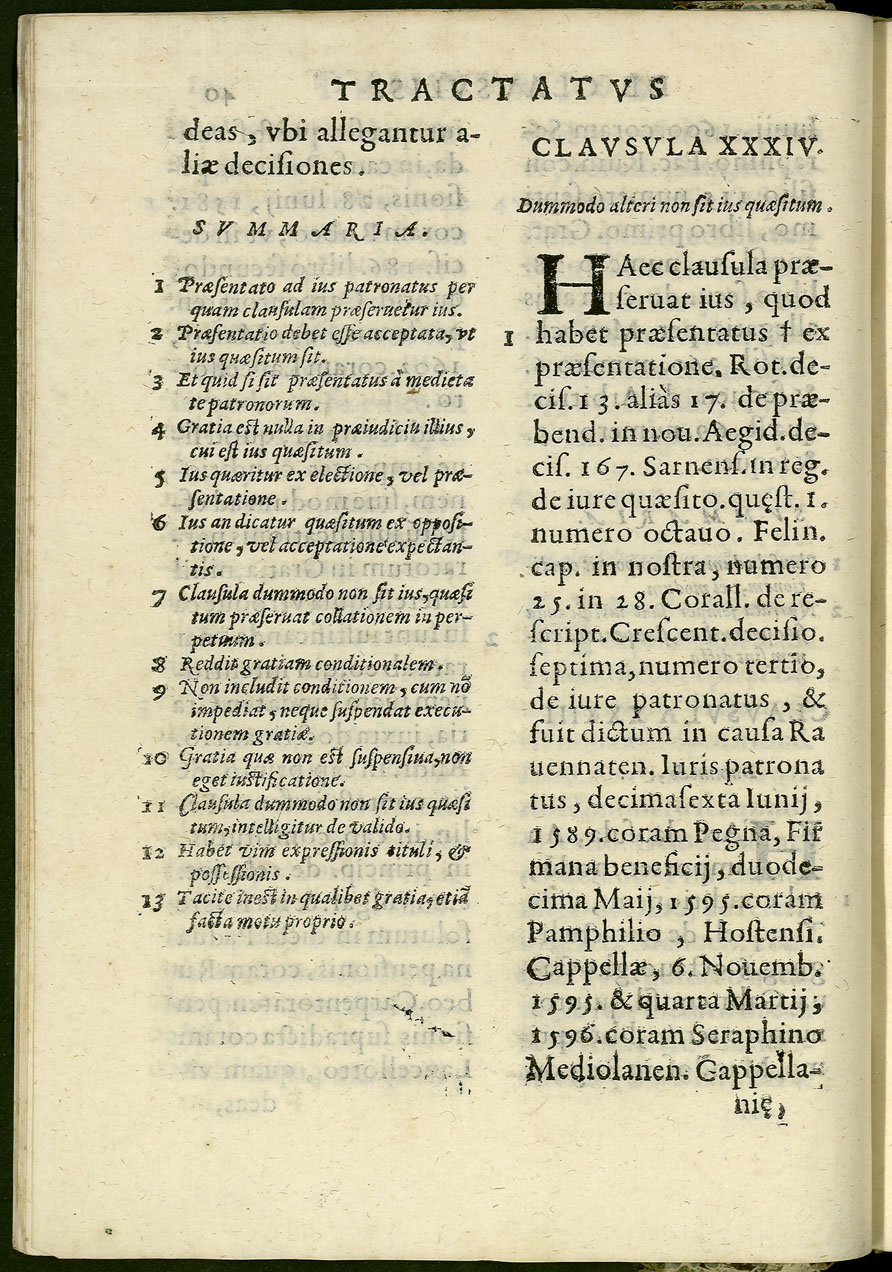 TRACTATVS
deas, vbi allegantur a-
liæ decisiones.
SVMMARIA.
1 Præsentato ad ius patronatus per
quam clausulam præseruetur ius.
2 Præsentatio debet esse acceptata, vt
ius quæsitum sit.
3 Et quid si sit præsentatus à medieta
te patronorum.
4 Gratia est nulla in præiudiciū illius,
cui est ius quæsitum.
5 Ius quæritur ex electione, vel præ-
sentatione.
6 Ius an dicatur quæsitum ex opposi-
tione, vel acceptatione expectan-
tis.
7 Clausula dummodo non sit ius, quæsi
tum præseruat collationem in per-
petuum.
8 Reddit gratiam conditionalem.
9 Non includit conditionem, cum nō
impediat, neque suspendat execu-
tionem gratiæ.
10 Gratia quæ non est suspensiua, non
eget iustificatione.
11 Clausula dummodo non sit ius quæsi
tum, intelligitur de valido.
12 Habet vim expressionis tituli, &
possessionis.
13 Tacite inest in qualibet gratia, etiā
facta motu proprio.
CLAVSVLA XXXIV.
Dummodo alteri non sit ius quæsitum.
HAec clausula præ-
seruat ius, quod
1 habet præsentatus † ex
præsentatione. Rot. de-
cis. 13. aliàs 17. de præ-
bend. in nou. Aegid. de-
cis. 167. Sarnens. in reg.
de iure quæsito. quęst. 1.
numero octauo. Felin.
cap. in nostra, numero
25. in 28. Corall. de re-
script. Crescent. decisio.
septima, numero tertio,
de iure patronatus, &
fuit dictum in causa Ra
uennaten. Iuris patrona
tus, decimasexta Iunij,
1589. coram Pegna, Fir
mana beneficij, duode-
cima Maij, 1595. coram
Pamphilio, Hostensi.
Cappellæ, 6. Nouemb.
1595. & quarta Martij,
1596. coram Seraphino
Mediolanen. Cappella-
nię,